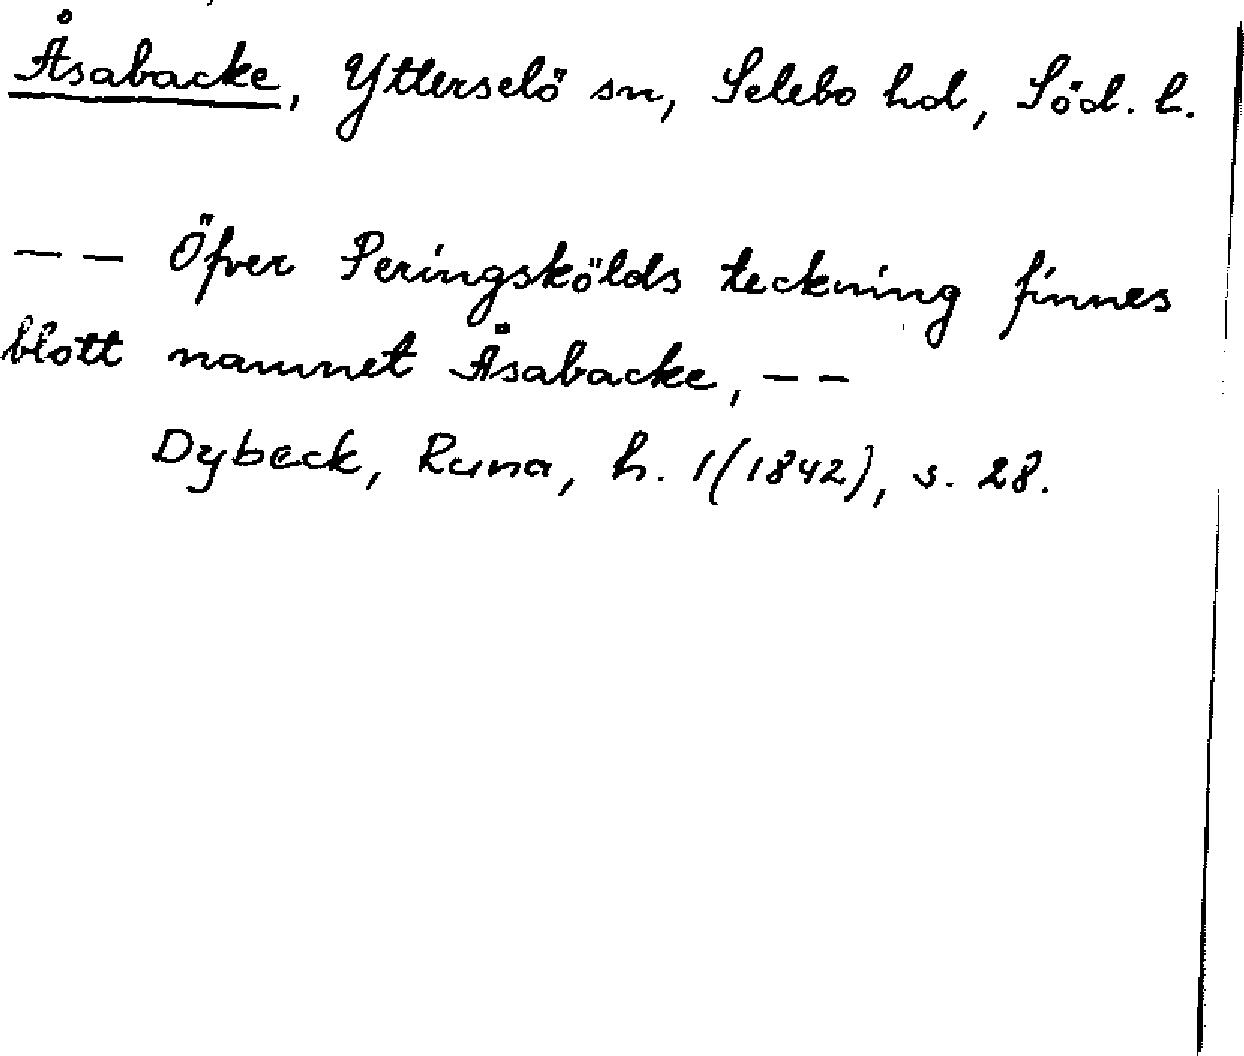 Åsabacke, Ytterselö sn, Selebo hd, Söd. l.
-- Öfver Peringskölds teckning finnes
blott namnet Åsabacke, --
Dybeck, Runa, h. 1(1842), s. 28.